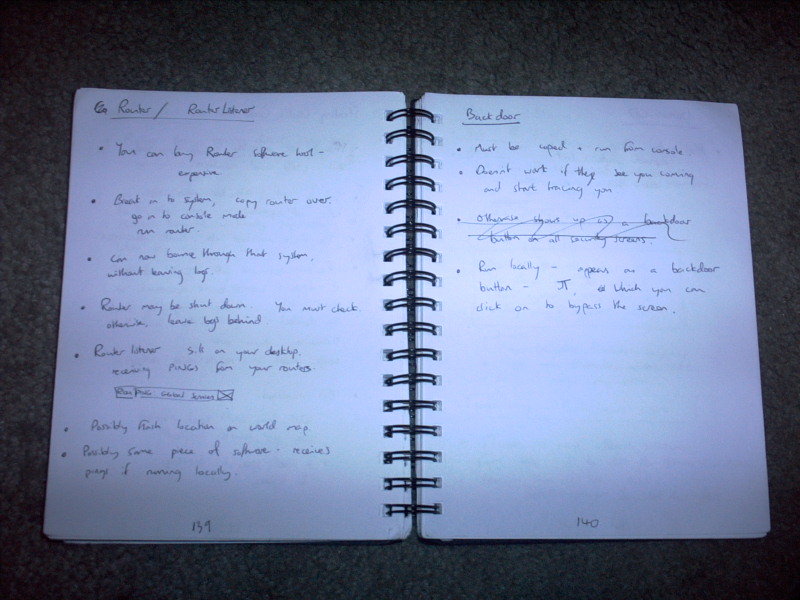 Router / Router Listener
• You can buy Router software tool -
expensive
• Break in to system, copy router over.
go in to console mode
run router.
• Can now bounce through that system,
without leaving logs.
• Router may be shut down. You must check.
otherwise, leave logs behind
• Router listener sits on your desktop,
receiving PINGS from your routers.
PING
• Possibly flash location on world map.
• Possibly same piece of software - receives
pings if running locally.
139
Backdoor
• Must be copied + run from console.
• Doesnt work if they see you coming
and start tracing you
• otherwise shows up as a backdoor
button on all security screens.
• Run locally - appears as a backdoor
button - π, which you can
click on to bypass the screen.
140